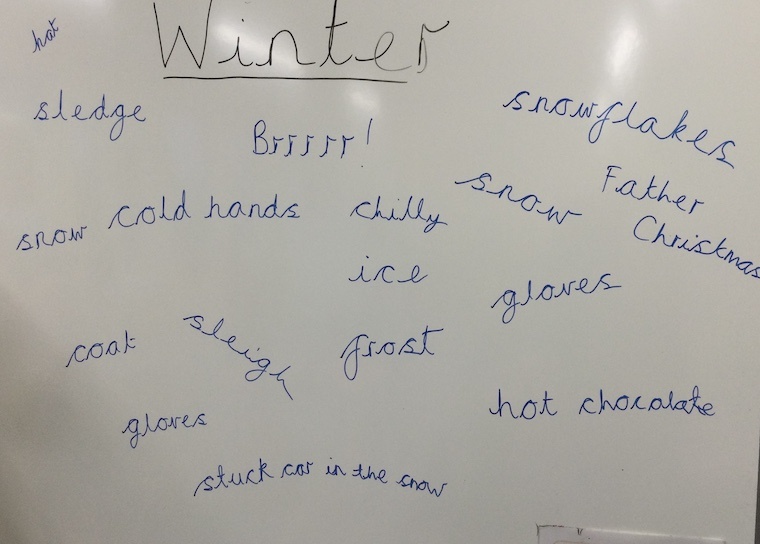 Winter
hat
sledge
Brrrrr!
snowflakes
snow
Father
Christmas
snow
cold hands
chilly
ice
gloves
coat
sleigh
frost
hot chocolate
gloves
stuck car in the snow